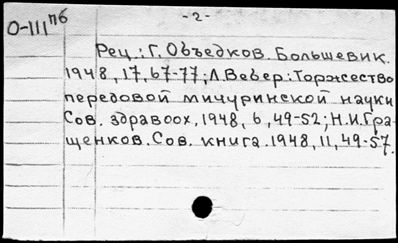 O-III пб
-2-
Рец.: Г. Объедков. Большевик.
1948, 17, 67-77; Л. Вебер: Торжество
передовой мичуринской науки
Сов. здравоох., 1948, 6, 49-52; Н.И. Гра-
щенков. Сов. книга. 1948, 11, 49-57.